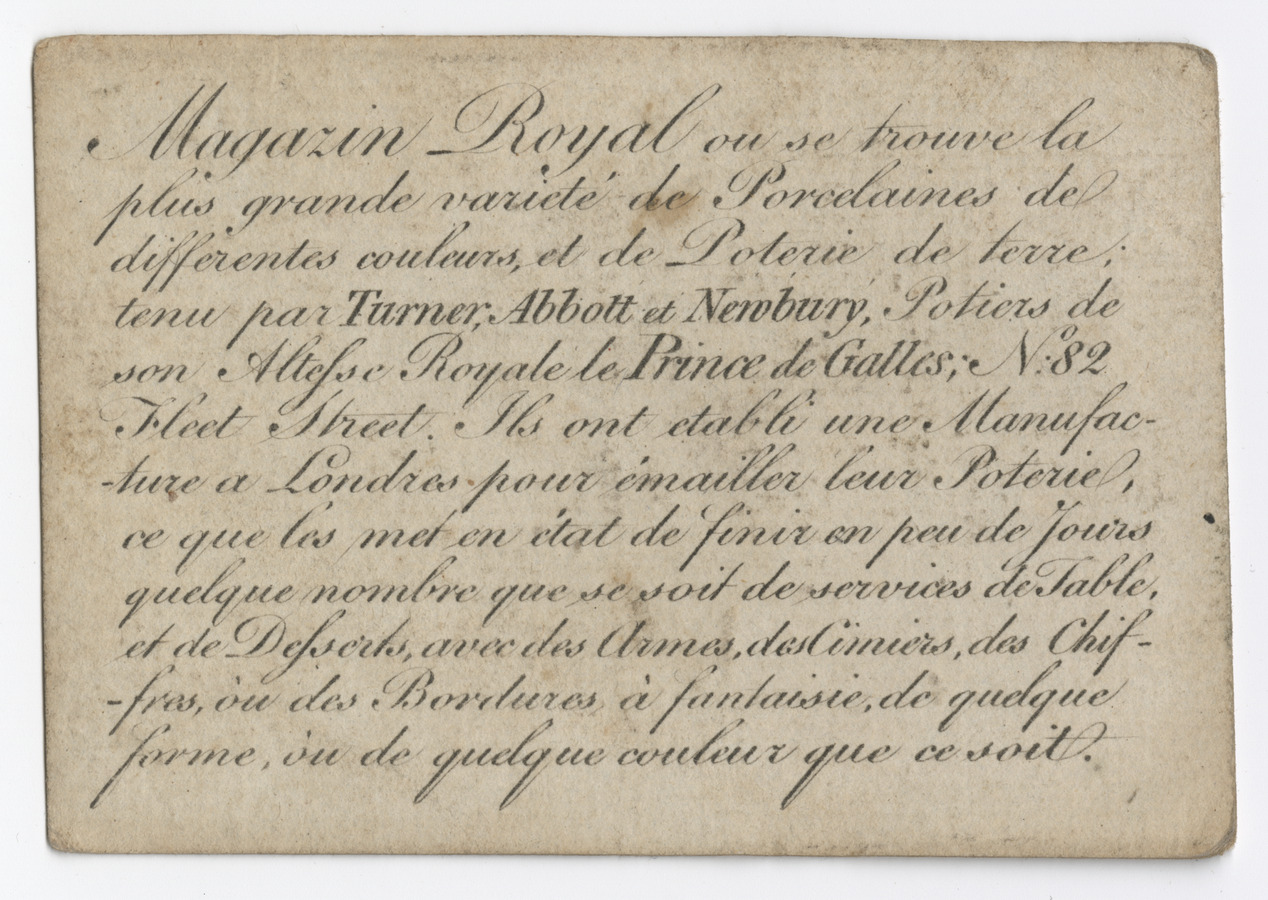 Magazin Royal ou se trouve la
plus grande varieté de Porcelaines de
différentes couleurs, et de Poterie de terre;
tenu par Turner, Abbott et Newbury, Potiers de
son Altesse Royale le Prince de Galles; No. 82
Fleet Street. Ils ont etabli une Manufac-
-ture a Londres pour émailler leur Poterie,
ce que les met en état de finir en peu de Jours
quelque nombre que se soit de services de Table,
et de Desserts, avec des Armes, des Cimiers, des Chif-
-fres, òu des Bordures à fantaisie, de quelque
forme, òu de quelque couleur que ce soit.